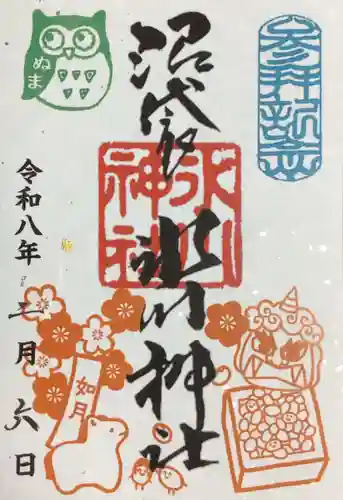 参拝記念
沼袋
氷川神社
氷川
神社
令和八年
二月六日
ぬま
如月